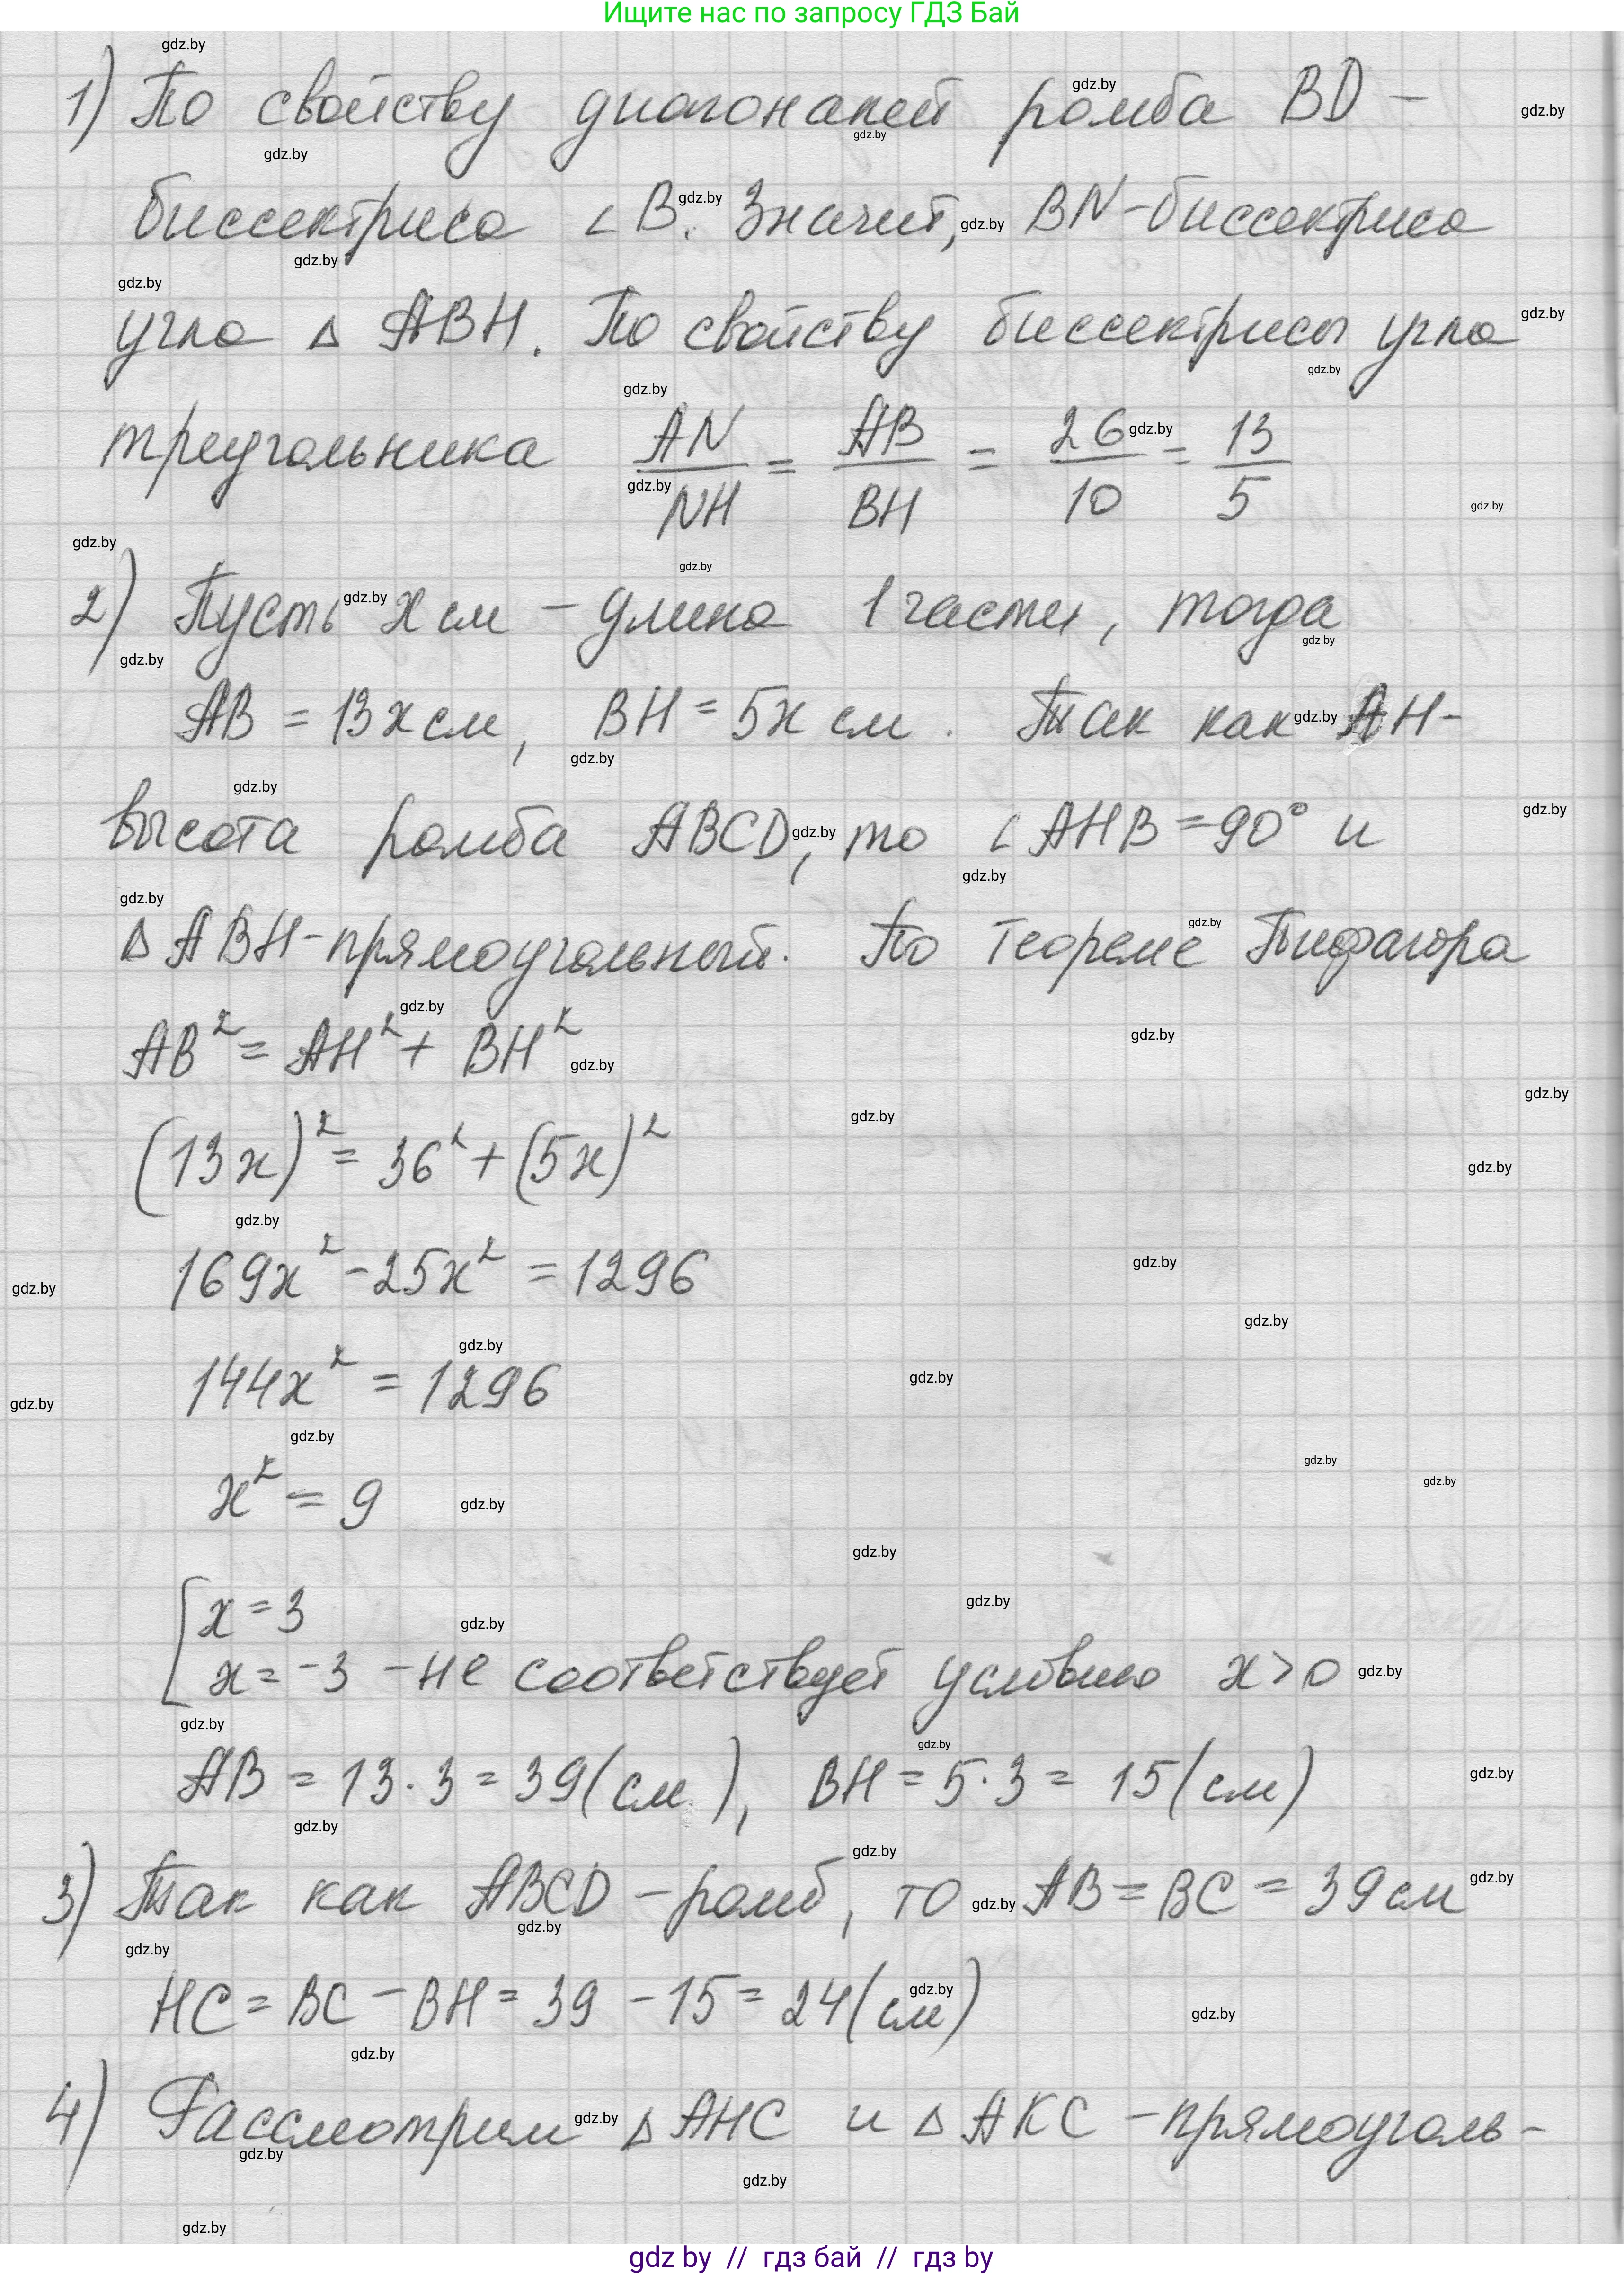 Ищите нас по запросу ГДЗ Бай
1) По свойству диагоналей ромба BD –
биссектриса ∠B. Значит, BN – биссектриса
угла △ ABH. По свойству биссектрисы угла
треугольника AN/NH = AB/BH = 26/10 = 13/5
2) Пусть x см – длина 1 части, тогда
AB = 13x см, BH = 5x см. Так как AH –
высота ромба ABCD, то ∠AHB = 90° и
△ABH – прямоугольный. По теореме Пифагора
AB² = AH² + BH²
(13x)² = 36² + (5x)²
169x² – 25x² = 1296
144x² = 1296
x² = 9
[ x = 3
x = –3 – не соответствует условию x > 0
AB = 13 · 3 = 39 (см), BH = 5 · 3 = 15 (см)
3) Так как ABCD – ромб, то AB = BC = 39 см
HC = BC – BH = 39 – 15 = 24 (см)
4) Рассмотрим △ AHC и △ AKC – прямоуголь-
gdz by // гдз бай // гдз by